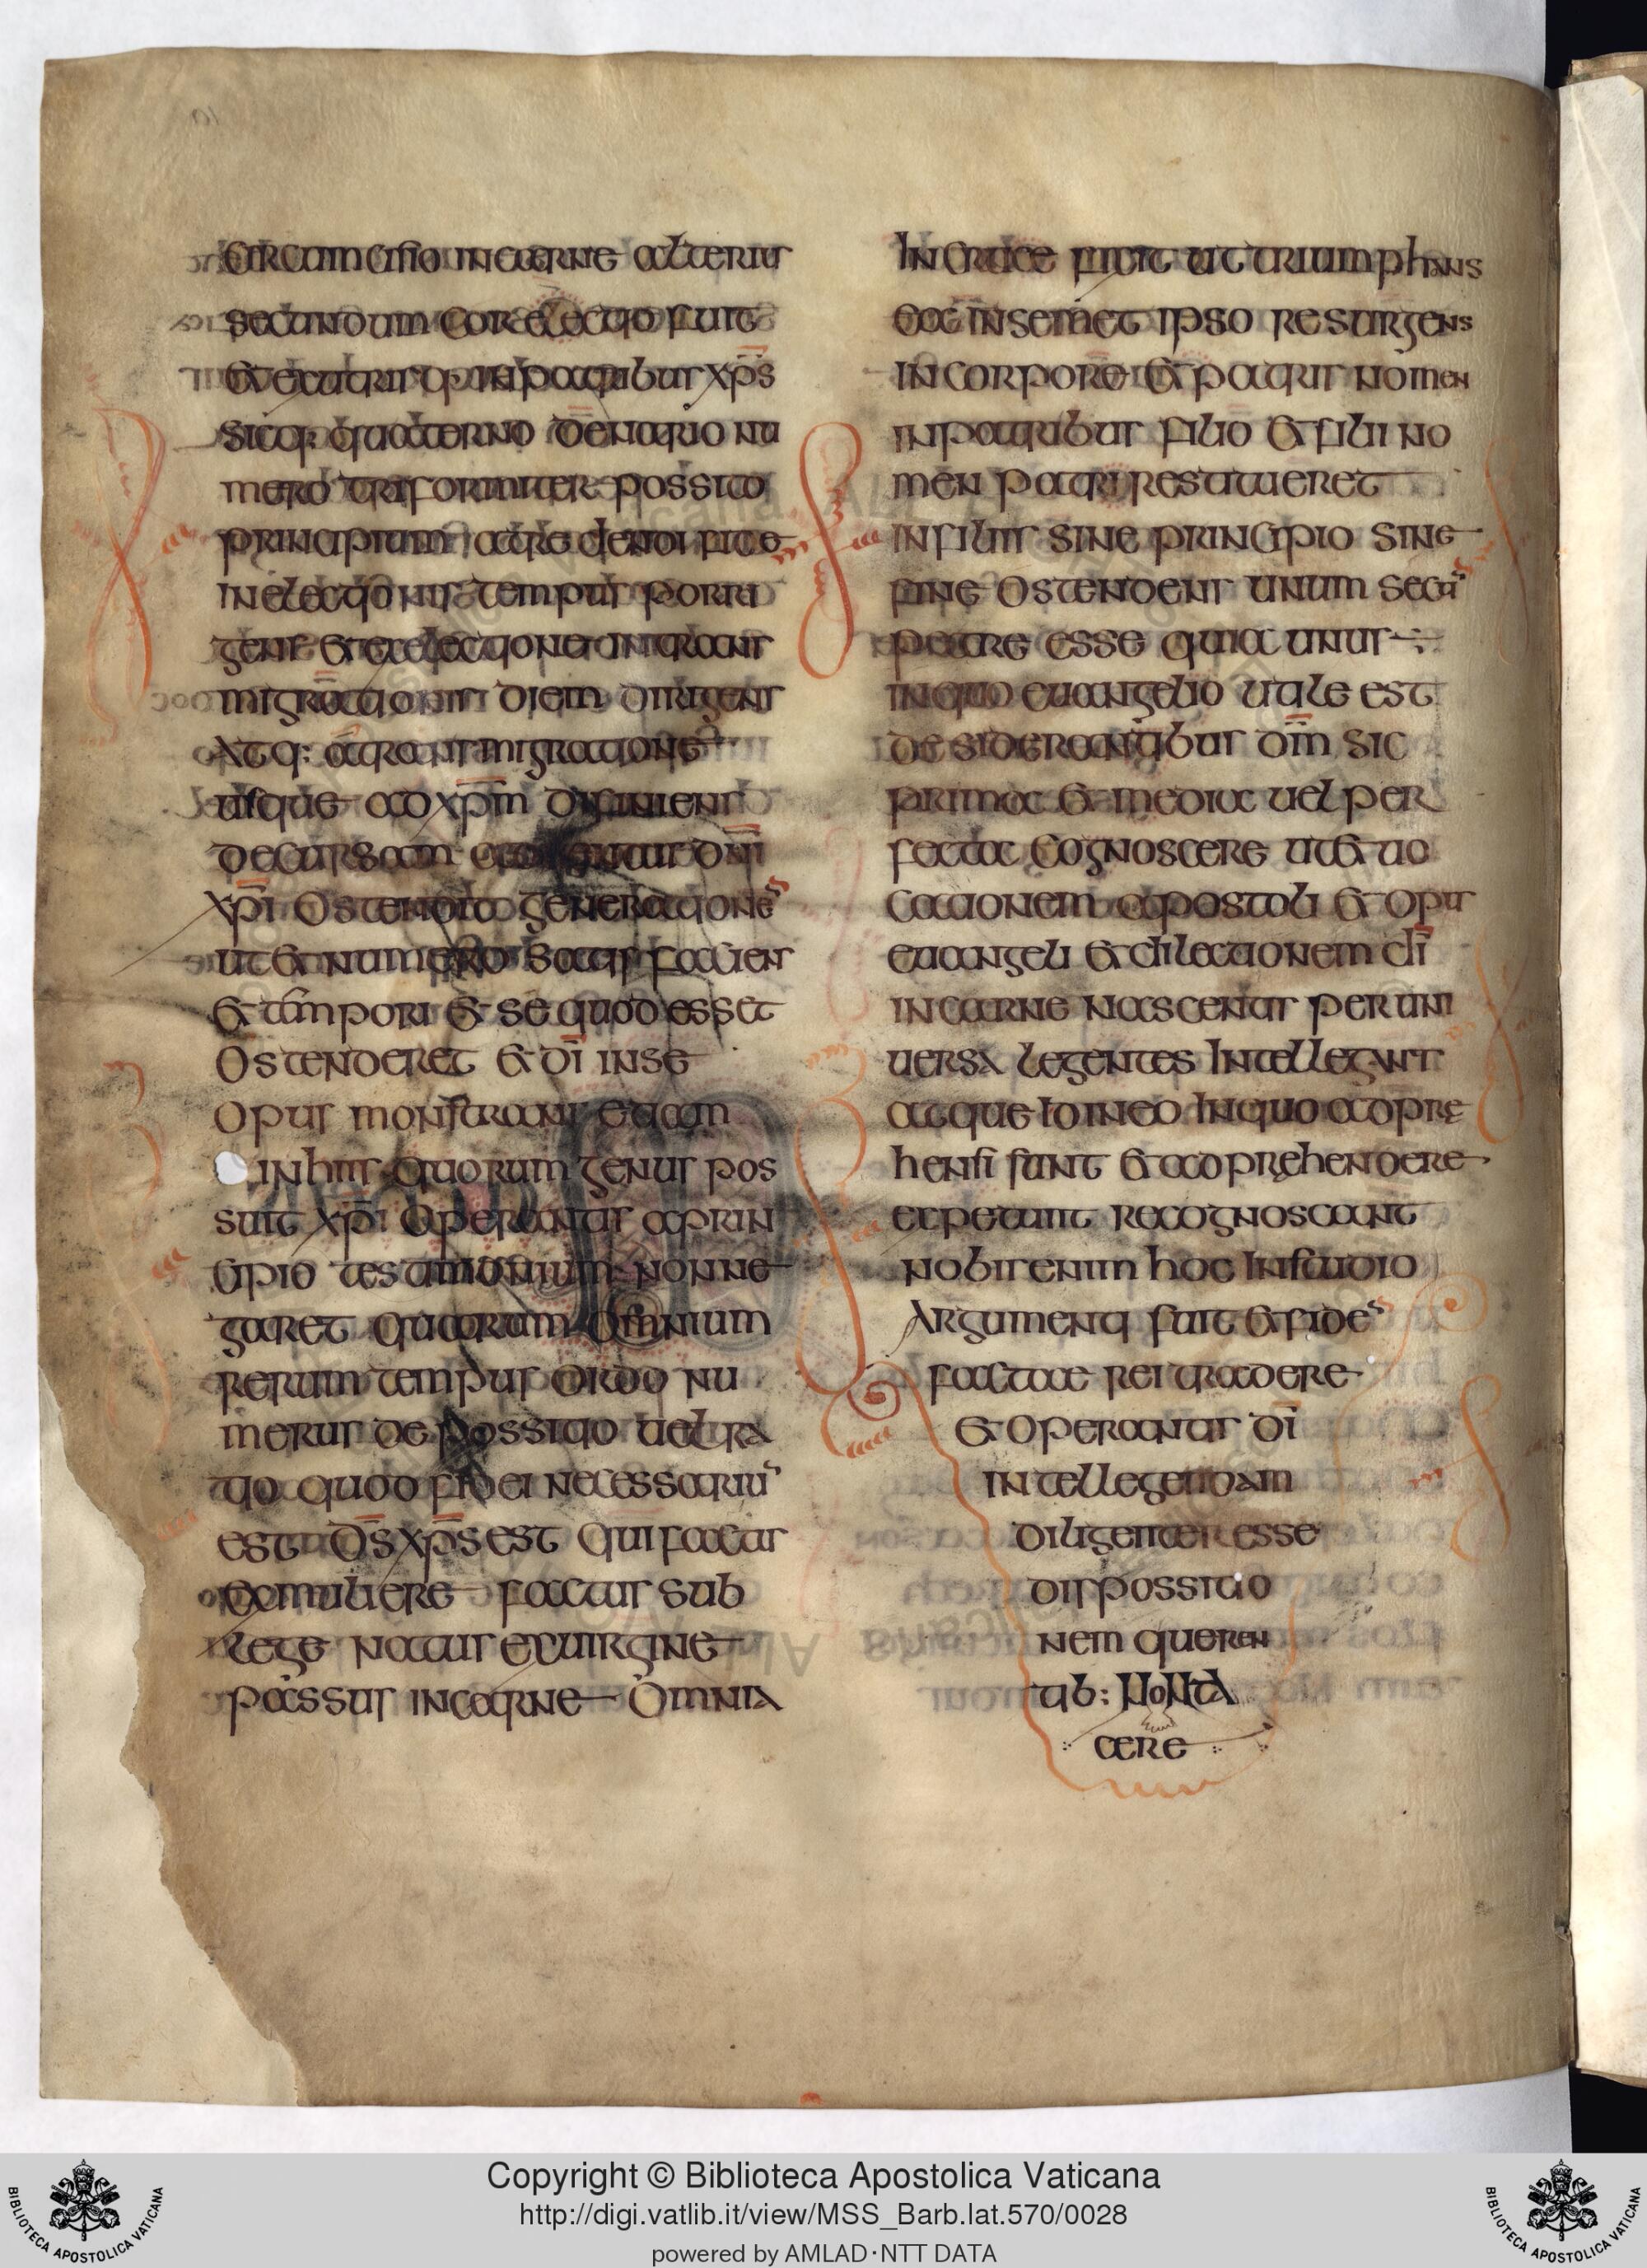 circumcisio in carne alterius
secundum cor electio fuit
et exutrisq: in patribus xp̄s
sicq: quaterno denario nu
mero triformiter possito
principium a cre dendi fide
in electionis tempus porri
gens et ex electione in trans
migrationis diem dirigens
atq: a transmigratione
usque ad xp̄m definiens
decursam dn̄i
xp̄i ostendit generationē
ut et numero satis faciens
et tempori et se quod esset
ostenderet et dī in se
opus monstrans etiam
in his quorum genus pos
suit xp̄i operantis a prin
cipio testimonium non ne
garet quarum omnium
rerum tempus ordo nu
merus dispossitio vel ra
tio quod fidei necessariū
est ds̄ xp̄s est qui factus
ex muliere factus sub
lege natus ex uirgine
passus in carne omnia
in cruce fixit ut triumphans
ea in semet ipso resurgens
in corpore et patris nomen
in patribus filio et filii no
men patri restitueret
in filiis sine principio sine
fine ostendens unum se cū
patre esse quia unus
in quo euangelio utile est
desiderantibus dm̄ sic
prima et media uel per
fecta cognoscere ut et uo
cationem apostoli et opus
euangeli et dilectionem dī
in carne nascentis per uni
uersa legentes intellegant
atque id in eo in quo adprę
hensi sunt et adpręhendere
expetunt recognoscant
nobis enim hoc in studio
argumenti fuit et fidē
factae rei tradere
et operantis dī
intellegendam
diligenter esse
dispossitio
nem queren
tib: non ta
cere
Copyright © Biblioteca Apostolica Vaticana
http://digi.vatlib.it/view/MSS_Barb.lat.570/0028
powered by AMLAD·NTT DATA
BIBLIOTECA APOSTOLICA VATICANA
BIBLIOTECA APOSTOLICA VATICANA